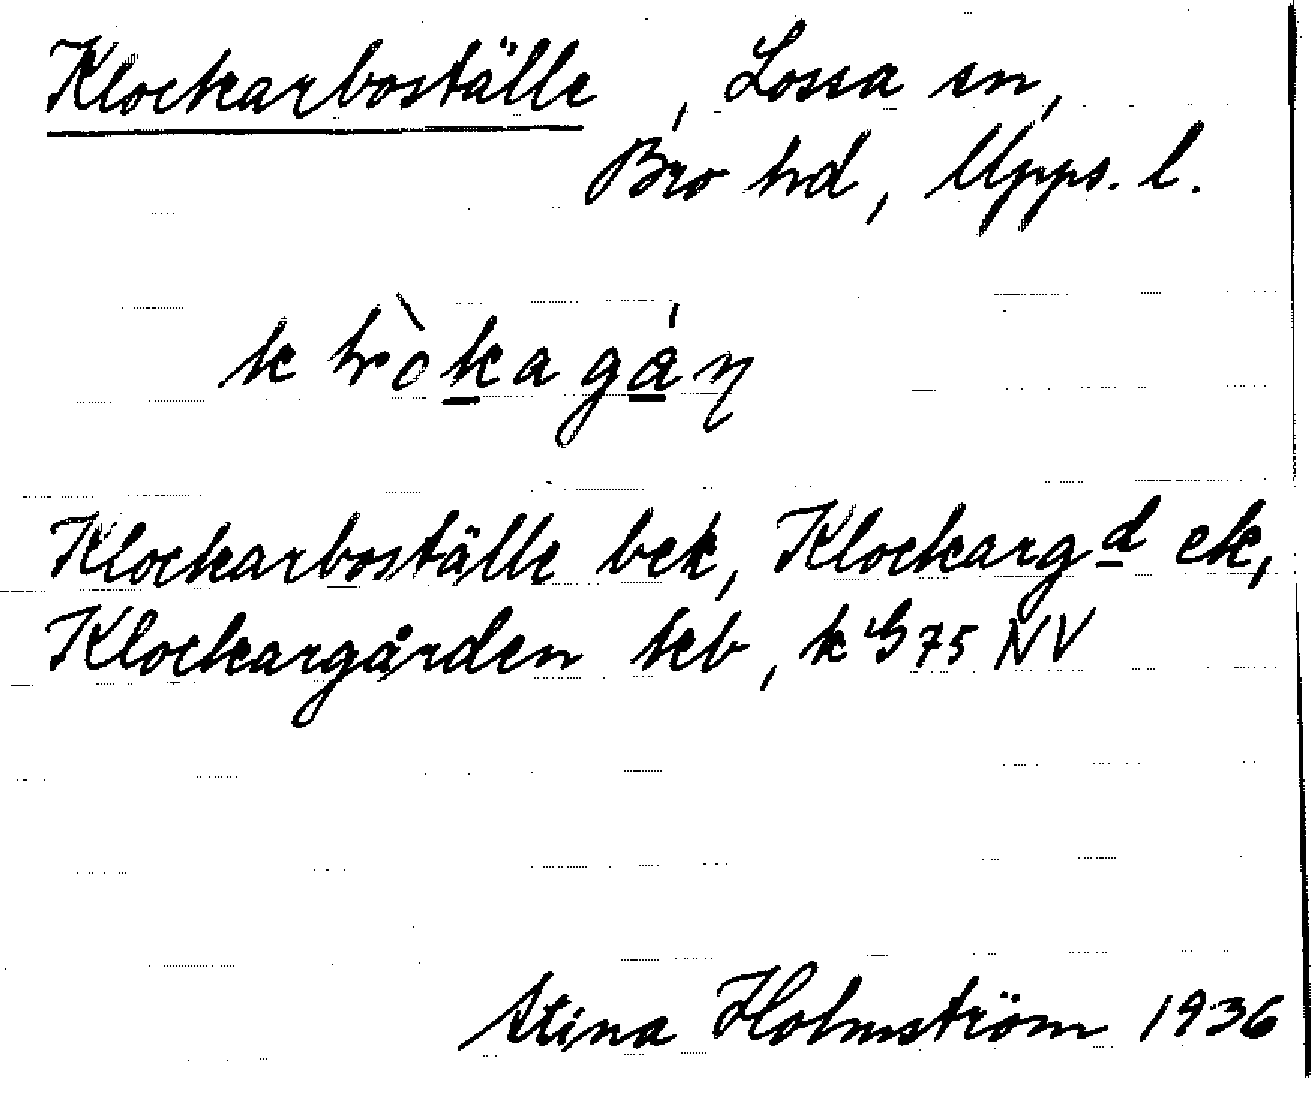 Klockarboställe, Lossa sn,
Bro hd, Upps. l.
Klockarboställe bek, Klockargd ek,
Klockargården skb, k 75 NV
Stina Holmström 1936